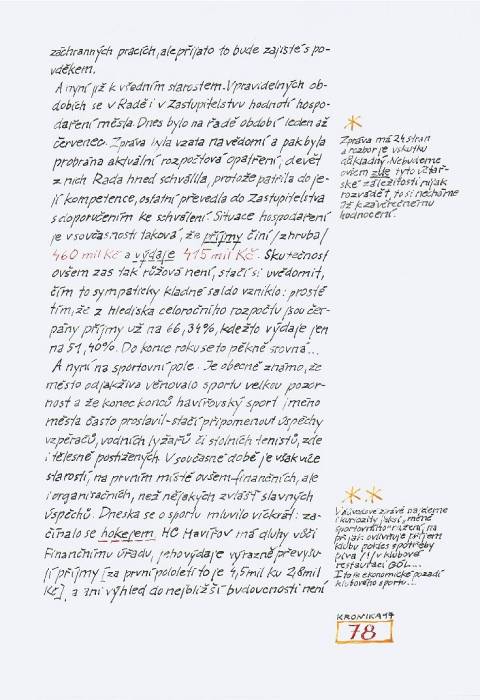 záchranných pracích, ale přijato to bude zajisté s po-
vděkem.
A nyní již k všedním starostem. V pravidelných ob-
dobích se v Radě i v Zastupitelstvu hodnotí hospo-
daření města. Dnes bylo na řadě období leden až
červenec. Zpráva byla vzata na vědomí a pak byla
probrána aktuální rozpočtová opatření; devět
z nich Rada hned schválila, protože patřila do je-
jí kompetence, ostatní převedla do Zastupitelstva
s doporučením ke schválení. Situace hospodaření
je v současnosti taková, že příjmy činí /zhruba/
460 mil Kč a výdaje 415 mil Kč. Skutečnost
ovšem zas tak růžová není, stačí si uvědomit,
čím to sympaticky kladné saldo vzniklo: prostě
tím, že z hlediska celoročního rozpočtu jsou čer-
pány příjmy už na 66,34%, kdežto výdaje jen
na 51,40%. Do konce roku se to pěkně srovná...
A nyní na sportovní pole. Je obecně známo, že
město odjakživa věnovalo sportu velkou pozor-
nost a že konec konců havířovský sport jméno
města často proslavil - stačí připomenout úspěchy
vzpěračů, vodních lyžařů či stolních tenistů, zde
i tělesně postižených. V současné době je však více
starostí, na prvním místě ovšem finančních, ale
i organisačních, než nějakých zvlášť slavných
úspěchů. Dneska se o sportu mluvilo víckrát: za-
čínalo se hokejem. HC Havířov má dluhy vůči
Finančnímu úřadu, jeho výdaje výrazně převyšu-
jí příjmy [za první pololetí to je 4,5 mil ku 2,8 mil
Kč], a ani výhled do nejbližší budoucnosti není
*
Zpráva má 24 stran
a rozbor je vskutku
důkladný. Nebudeme
ovšem zde tyto účtař-
ské záležitosti nijak
rozvádět, to si necháme
až k závěrečnému
hodnocení.
* *
V důvodové zprávě najdeme
i kuriozity jaksi „méně
sportovního" ražení, na
př. jak ovlivňuje příjem
klubu pokles spotřeby
piva /!/ v klubové
restauraci GÓL...
I to je ekonomické pozadí
klubového sportu...
KRONIKA 97
78